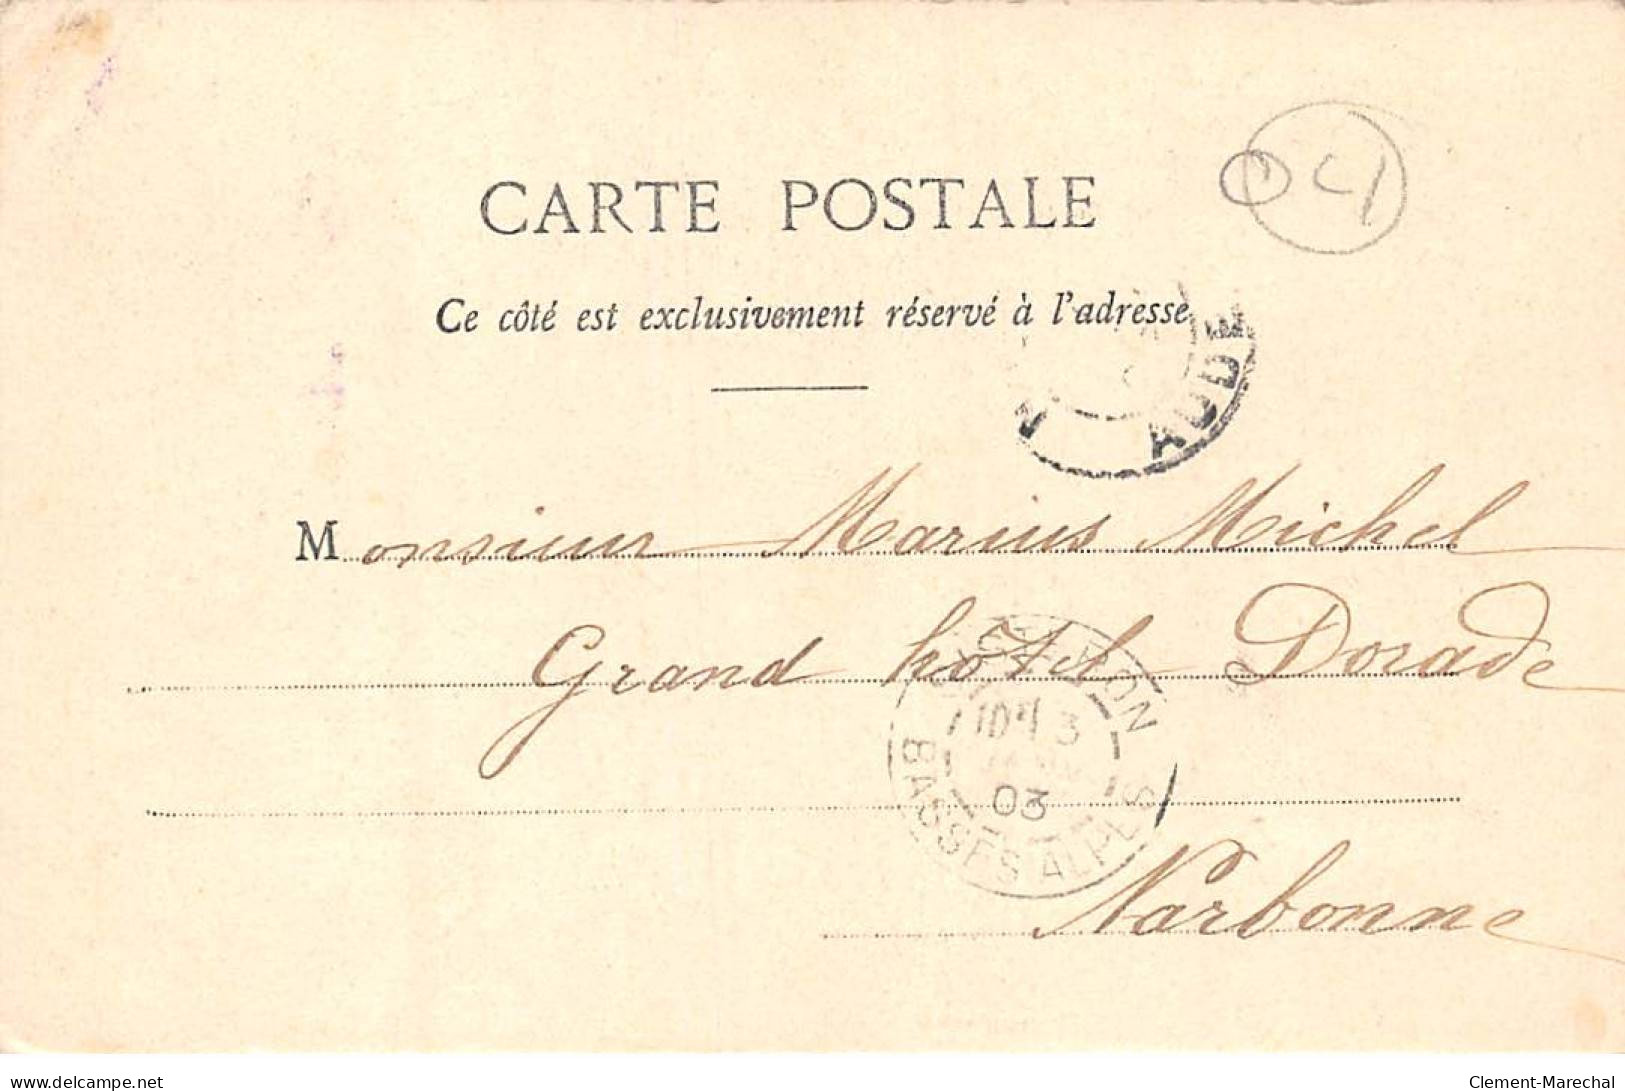 04
CARTE POSTALE
Ce côté est exclusivement réservé à l'adresse
AUDE
Monsieur Marius Michel
Grand hôtel Dorade
03
BASSES ALPES
Narbonne
www.delcampe.net
Clement-Marechal